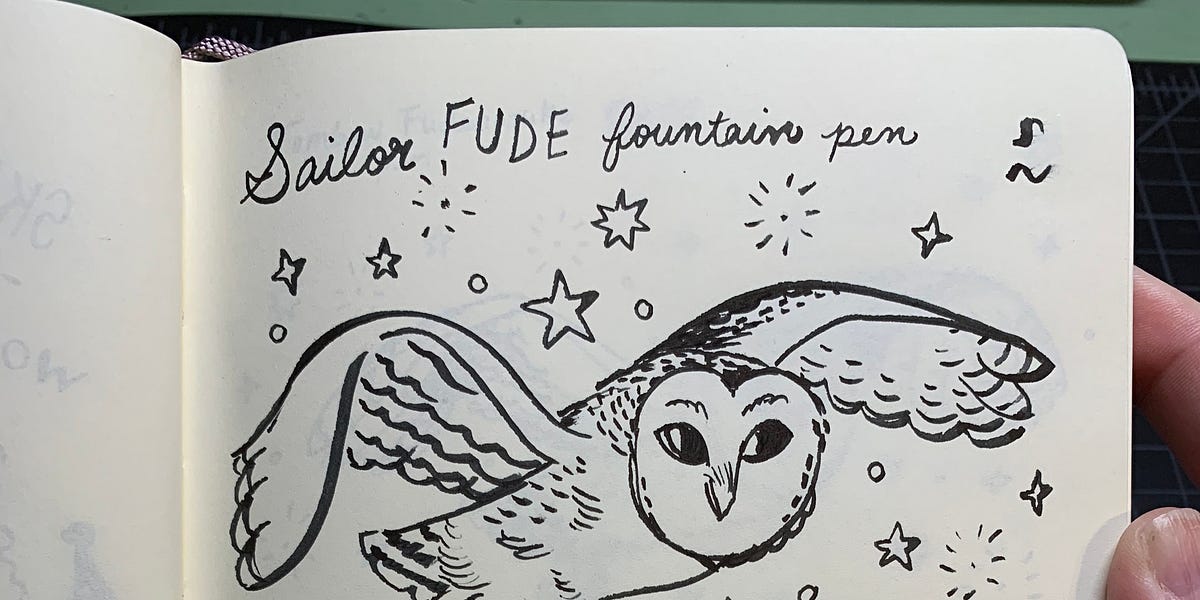 Sailor FUDE fountain pen